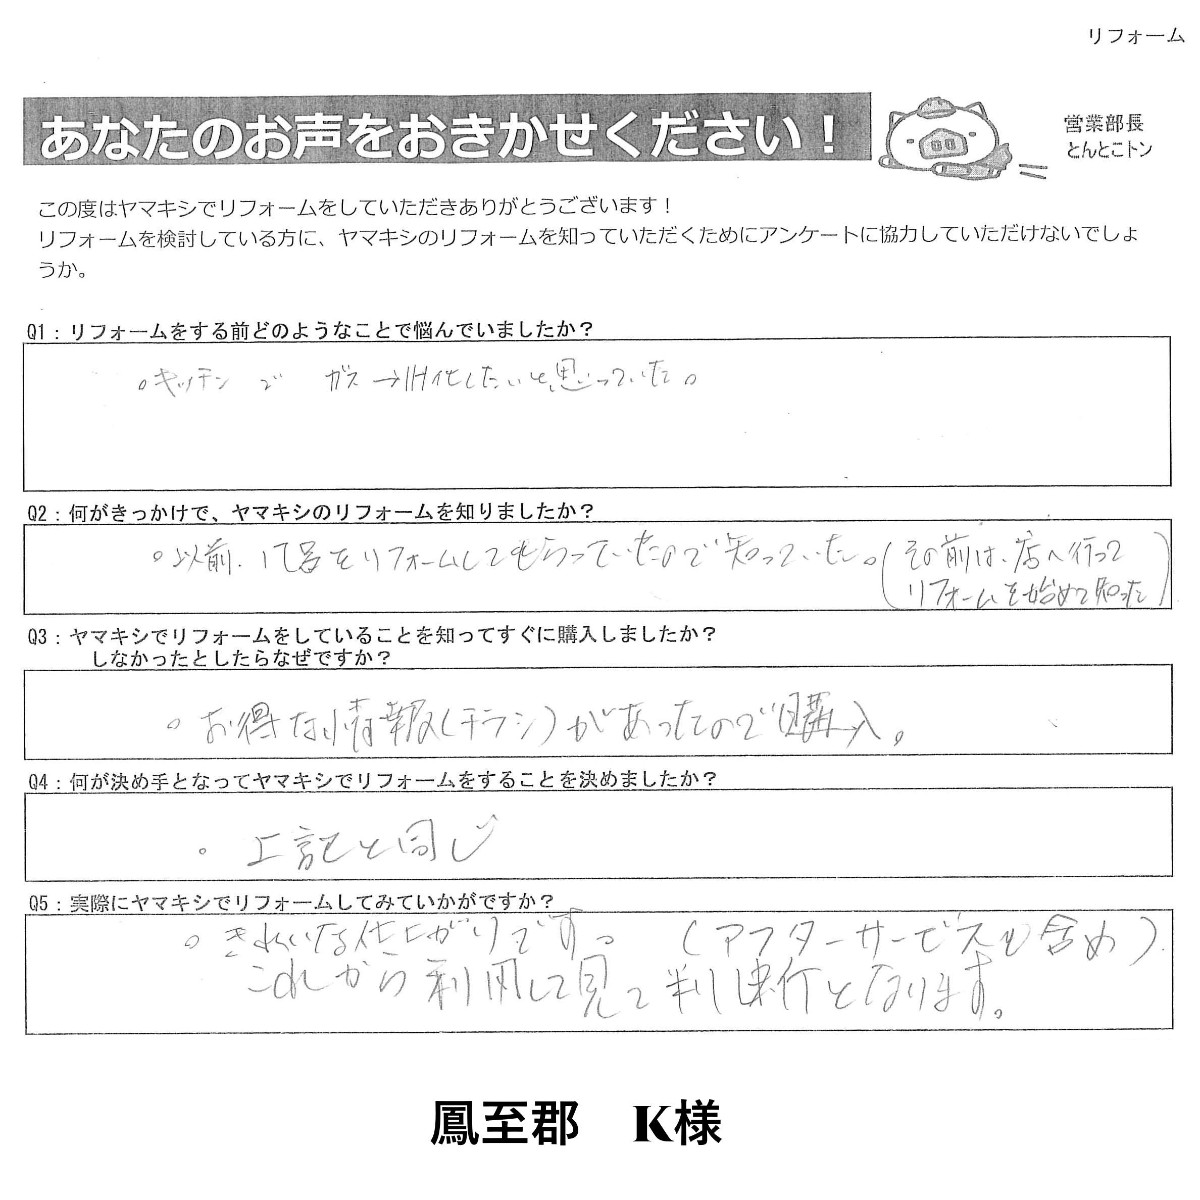 リフォーム
あなたのお声をおきかせください！
営業部長
とんとこトン
この度はヤマキシでリフォームをしていただきありがとうございます！
リフォームを検討している方に、ヤマキシのリフォームを知っていただくためにアンケートに協力していただけないでしょ
うか。
Q1：リフォームをする前どのようなことで悩んでいましたか？
。キッチンで ガス→IH化したいと思いっていた。
Q2：何がきっかけで、ヤマキシのリフォームを知りましたか？
。以前、風呂をリフォームしてもらっていたので知っていた。(その前は、店へ行って
リフォームを始めて知った)
Q3：ヤマキシでリフォームをしていることを知ってすぐに購入しましたか？
しなかったとしたらなぜですか？
。お得な情報(チラシ)があったので購入。
Q4：何が決め手となってヤマキシでリフォームをすることを決めましたか？
。上記と同じ
Q5：実際にヤマキシでリフォームしてみていかがですか？
。きれいな仕上がりです。 (アフターサービスも含め)
これから利用して見て判 となります。
鳳至郡 K様